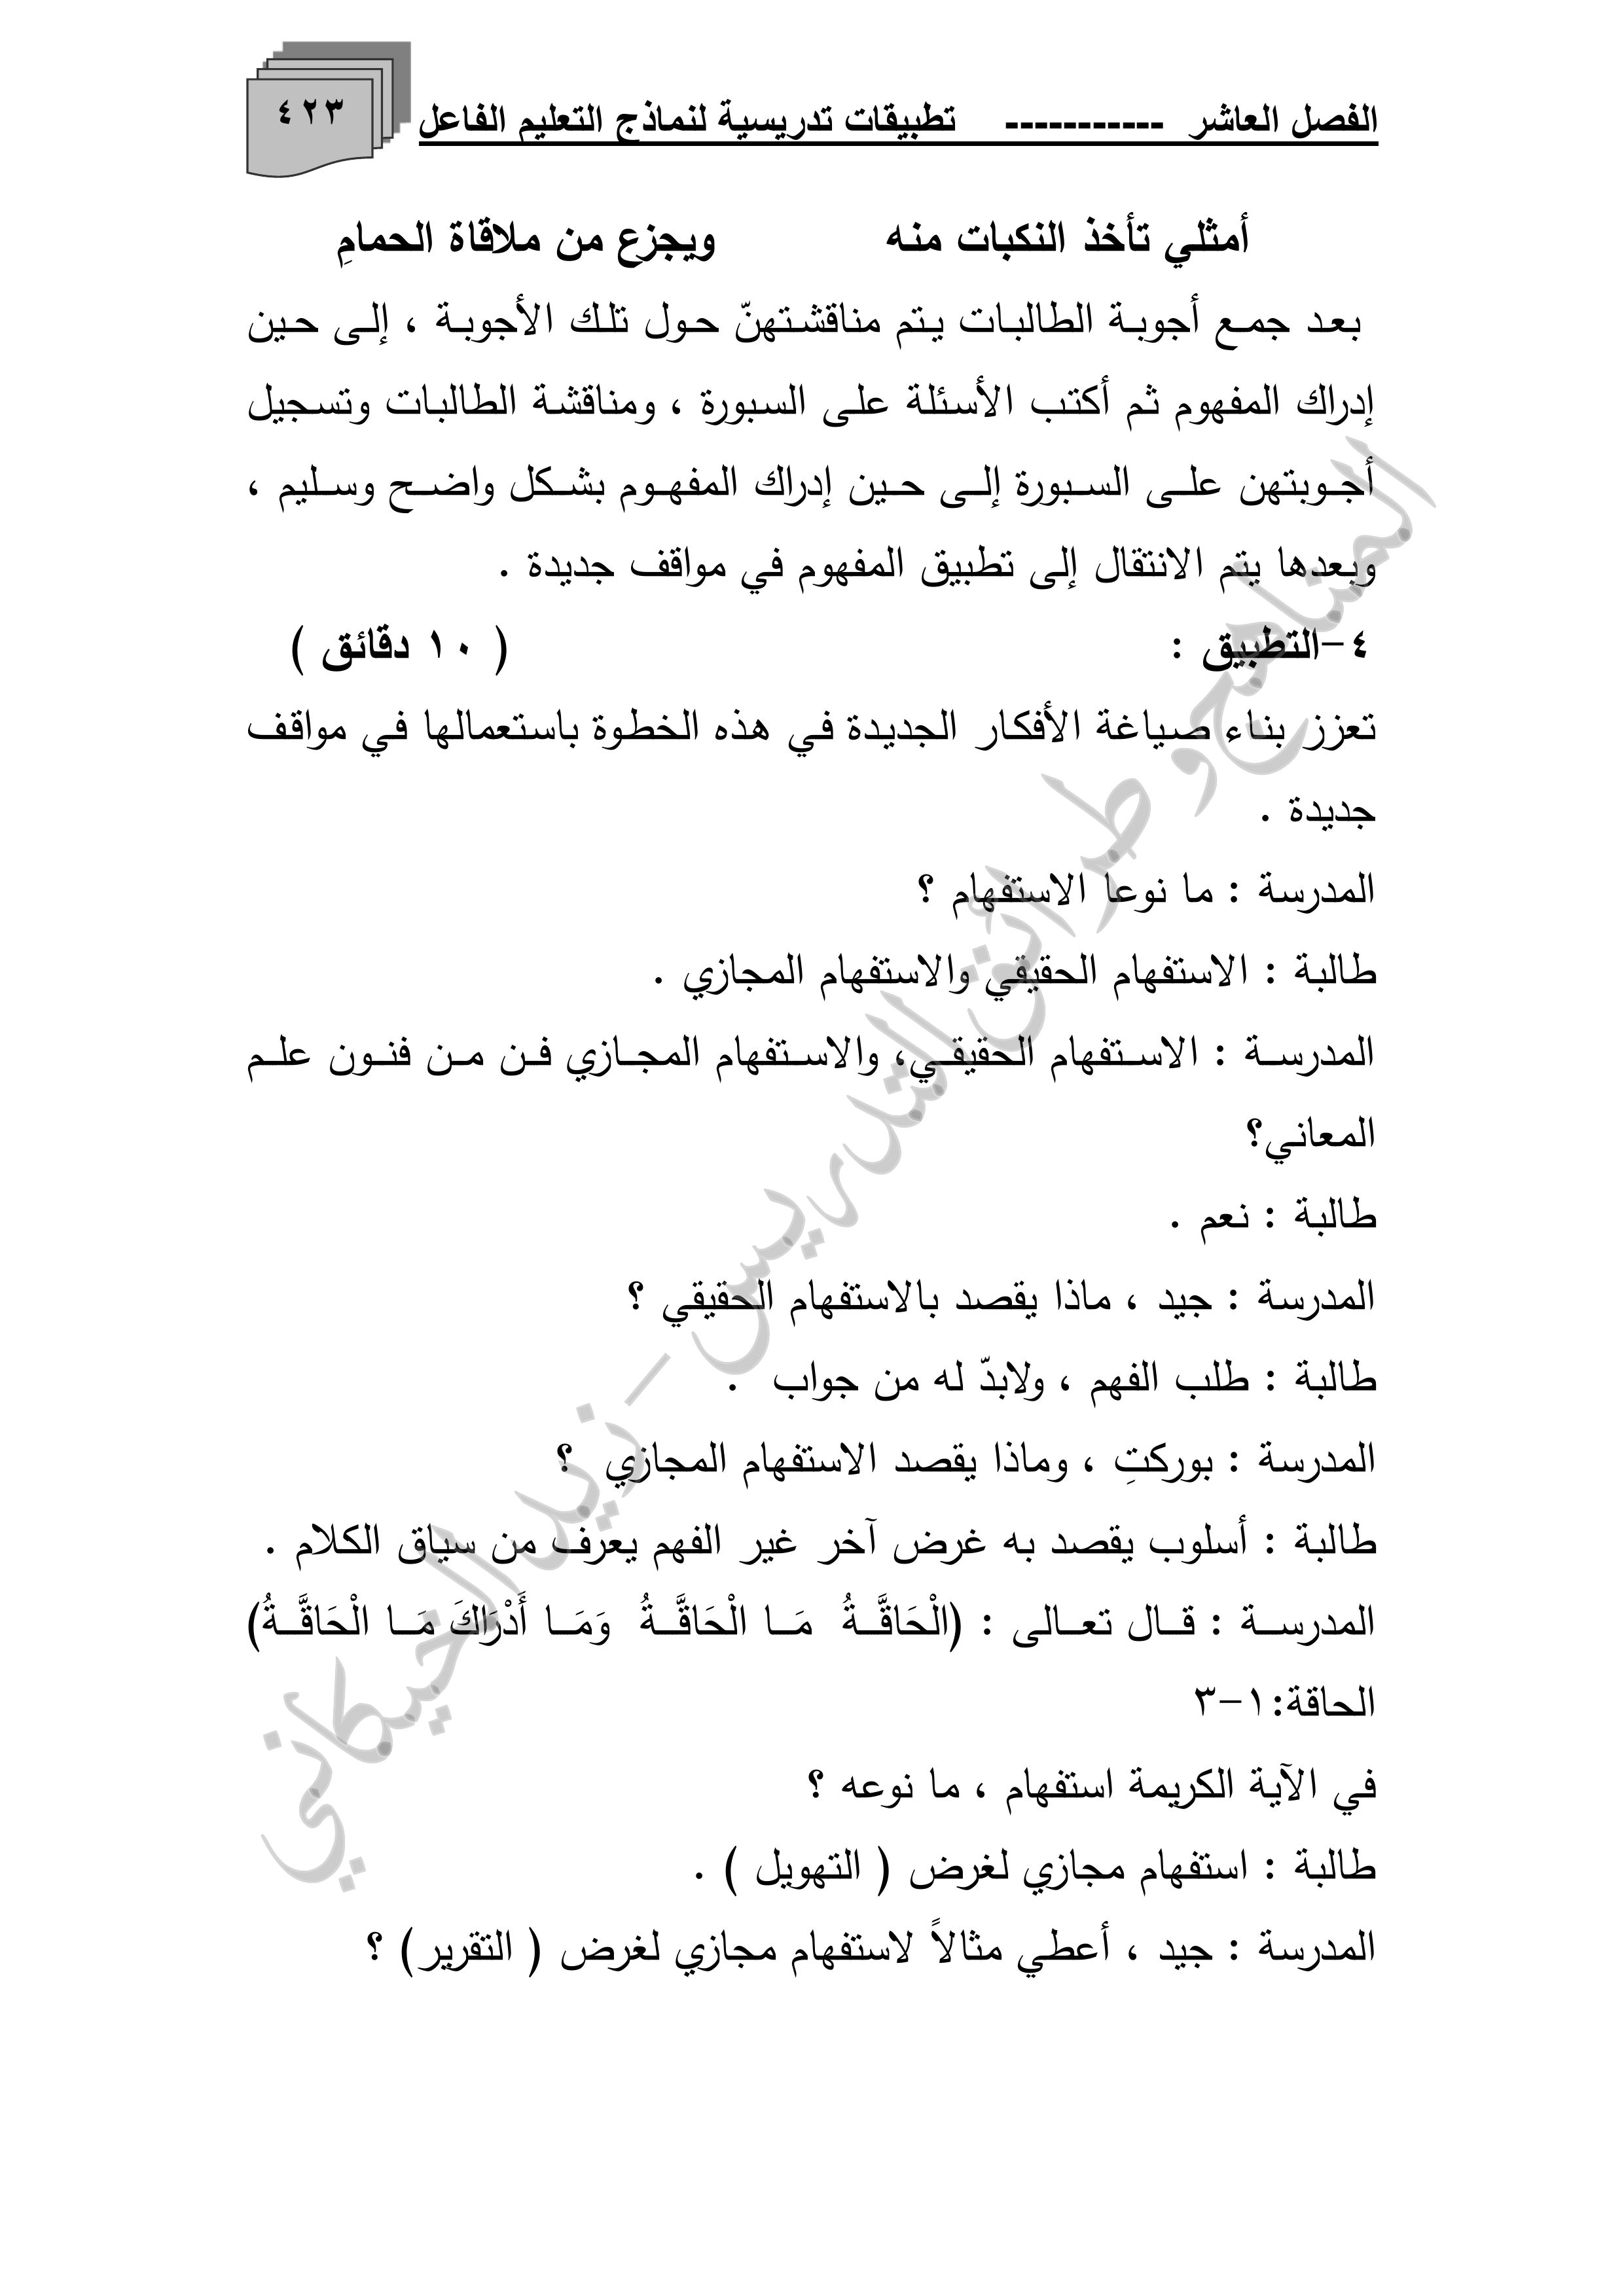 الفصل العاشر ----------- تطبيقات تدريسية لنماذج التعليم الفاعل
٤٢٣
أمثلي تأخذ النكبات منه ويجزع من ملاقاة الحمامِ
بعد جمع أجوبة الطالبات يتم مناقشتهنّ حول تلك الأجوبة ، إلى حين
إدراك المفهوم ثم أكتب الأسئلة على السبورة ، ومناقشة الطالبات وتسجيل
أجوبتهن على السبورة إلى حين إدراك المفهوم بشكل واضح وسليم ،
وبعدها يتم الانتقال إلى تطبيق المفهوم في مواقف جديدة .
٤-التطبيق : ( ١٠ دقائق )
تعزز بناء صياغة الأفكار الجديدة في هذه الخطوة باستعمالها في مواقف
جديدة .
المدرسة : ما نوعا الاستفهام ؟
طالبة : الاستفهام الحقيقي والاستفهام المجازي .
المدرسة : الاستفهام الحقيقي، والاستفهام المجازي فن من فنون علم
المعاني؟
طالبة : نعم .
المدرسة : جيد ، ماذا يقصد بالاستفهام الحقيقي ؟
طالبة : طلب الفهم ، ولابدّ له من جواب .
المدرسة : بوركتِ ، وماذا يقصد الاستفهام المجازي ؟
طالبة : أسلوب يقصد به غرض آخر غير الفهم يعرف من سياق الكلام .
المدرسة : قال تعالى : (الْحَاقَّةُ مَا الْحَاقَّةُ وَمَا أَدْرَاكَ مَا الْحَاقَّةُ)
الحاقة:١-٣
في الآية الكريمة استفهام ، ما نوعه ؟
طالبة : استفهام مجازي لغرض ( التهويل ) .
المدرسة : جيد ، أعطي مثالاً لاستفهام مجازي لغرض ( التقرير) ؟
المناهج وطرائق التدريس - زيد الخيكاني